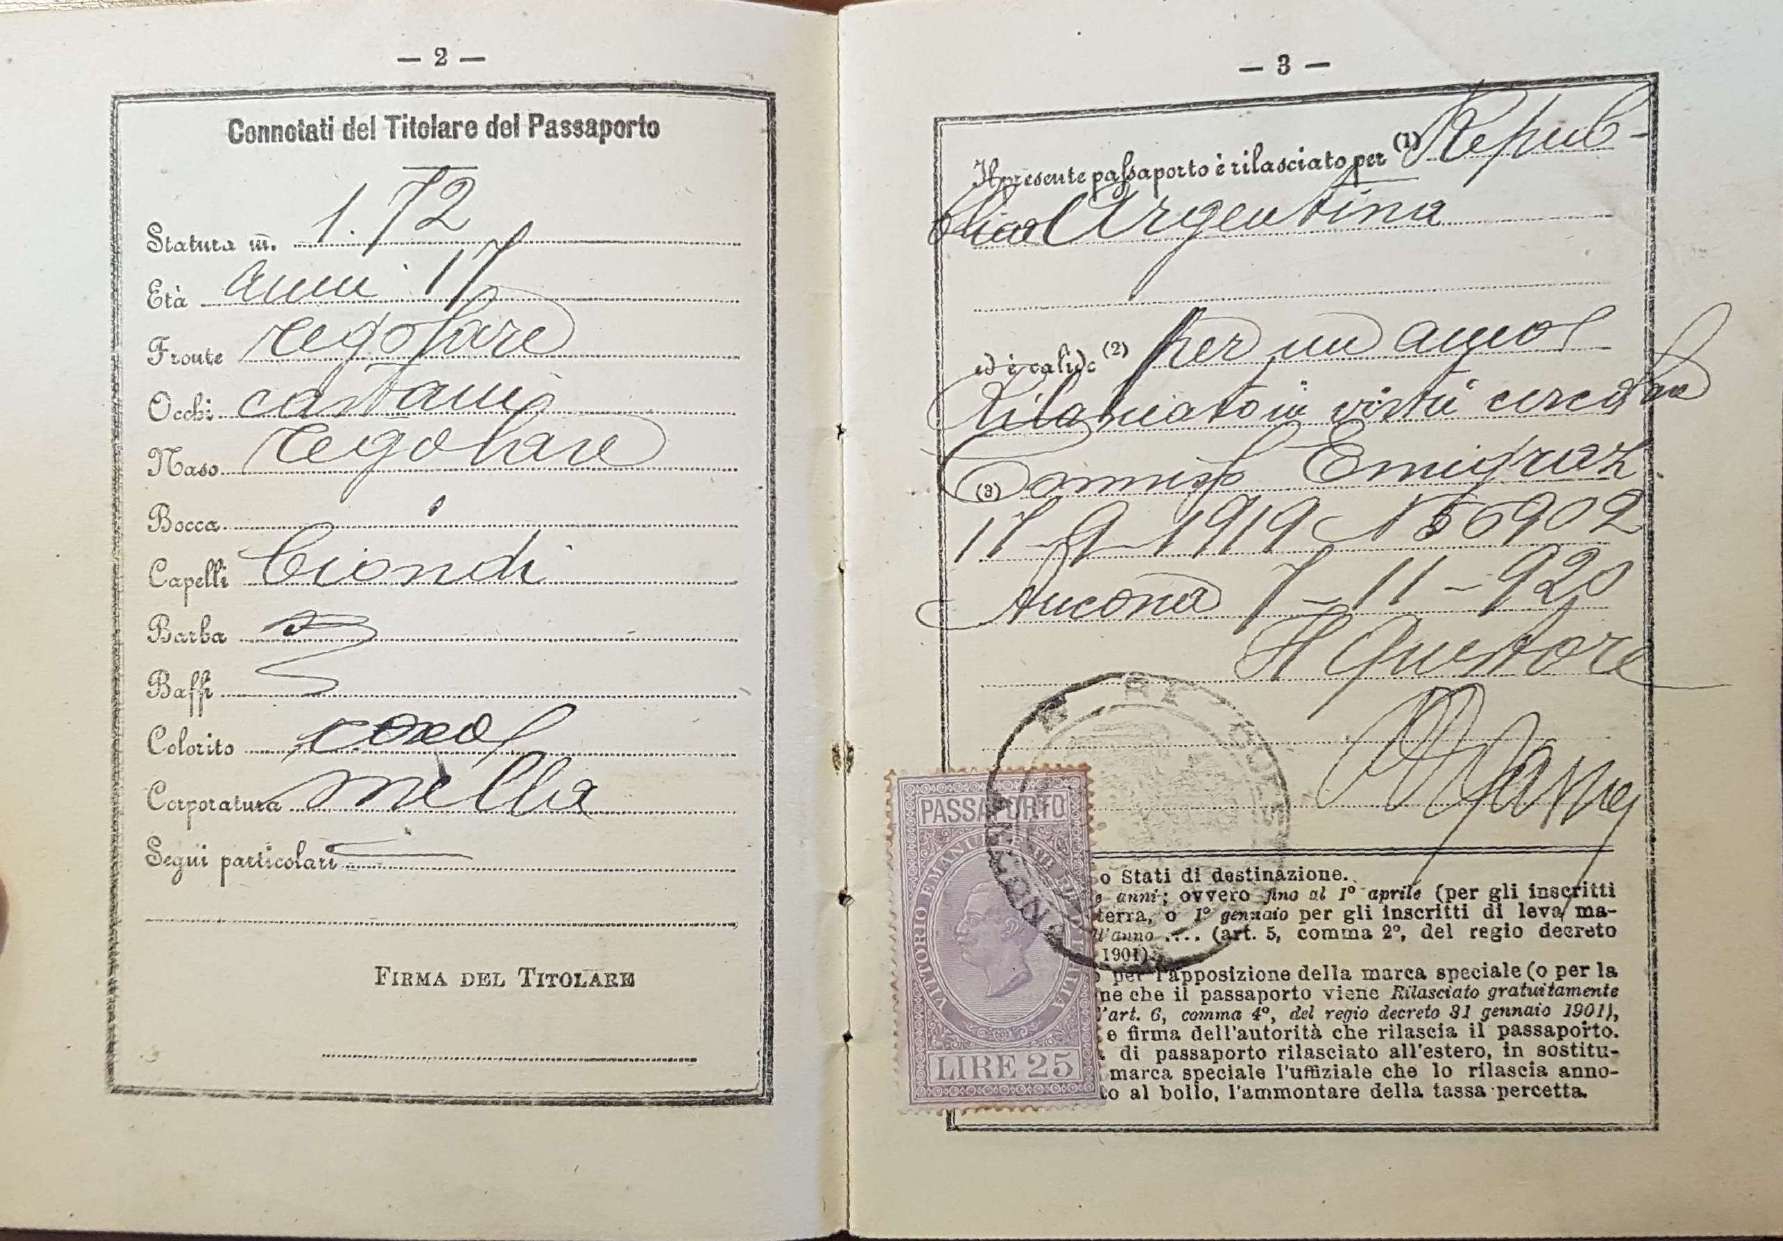 — 2 —
Connotati del Titolare del Passaporto
Statura m. 1.72
Età anni 17
Fronte regolare
Occhi castani
Naso regolare
Bocca
Capelli biondi
Barba
Baffi
Colorito roseo
Corporatura snella
Segni particolari
FIRMA DEL TITOLARE
— 3 —
Il presente passaporto è rilasciato per (1) Repub-
blica Argentina
ed è valido (2) per un anno
Rilasciato in virtù circolare
(3) Commiss Emigraz.
17-9-1919 N 56902
Ancona 7-11-920
Il Questore
PASSAPORTO
VITTORIO EMANUELE III RE D'ITALIA
LIRE 25
ANCONA
o Stati di destinazione.
anni; ovvero fino al 1º aprile (per gli inscritti
terra, o 1º gennaio per gli inscritti di leva ma-
ll'anno .... (art. 5, comma 2º, del regio decreto
1901).
per l'apposizione della marca speciale (o per la
ne che il passaporto viene Rilasciato gratuitamente
l'art. 6, comma 4º, del regio decreto 31 gennaio 1901),
e firma dell'autorità che rilascia il passaporto.
di passaporto rilasciato all'estero, in sostitu-
marca speciale l'uffiziale che lo rilascia anno-
to al bollo, l'ammontare della tassa percetta.